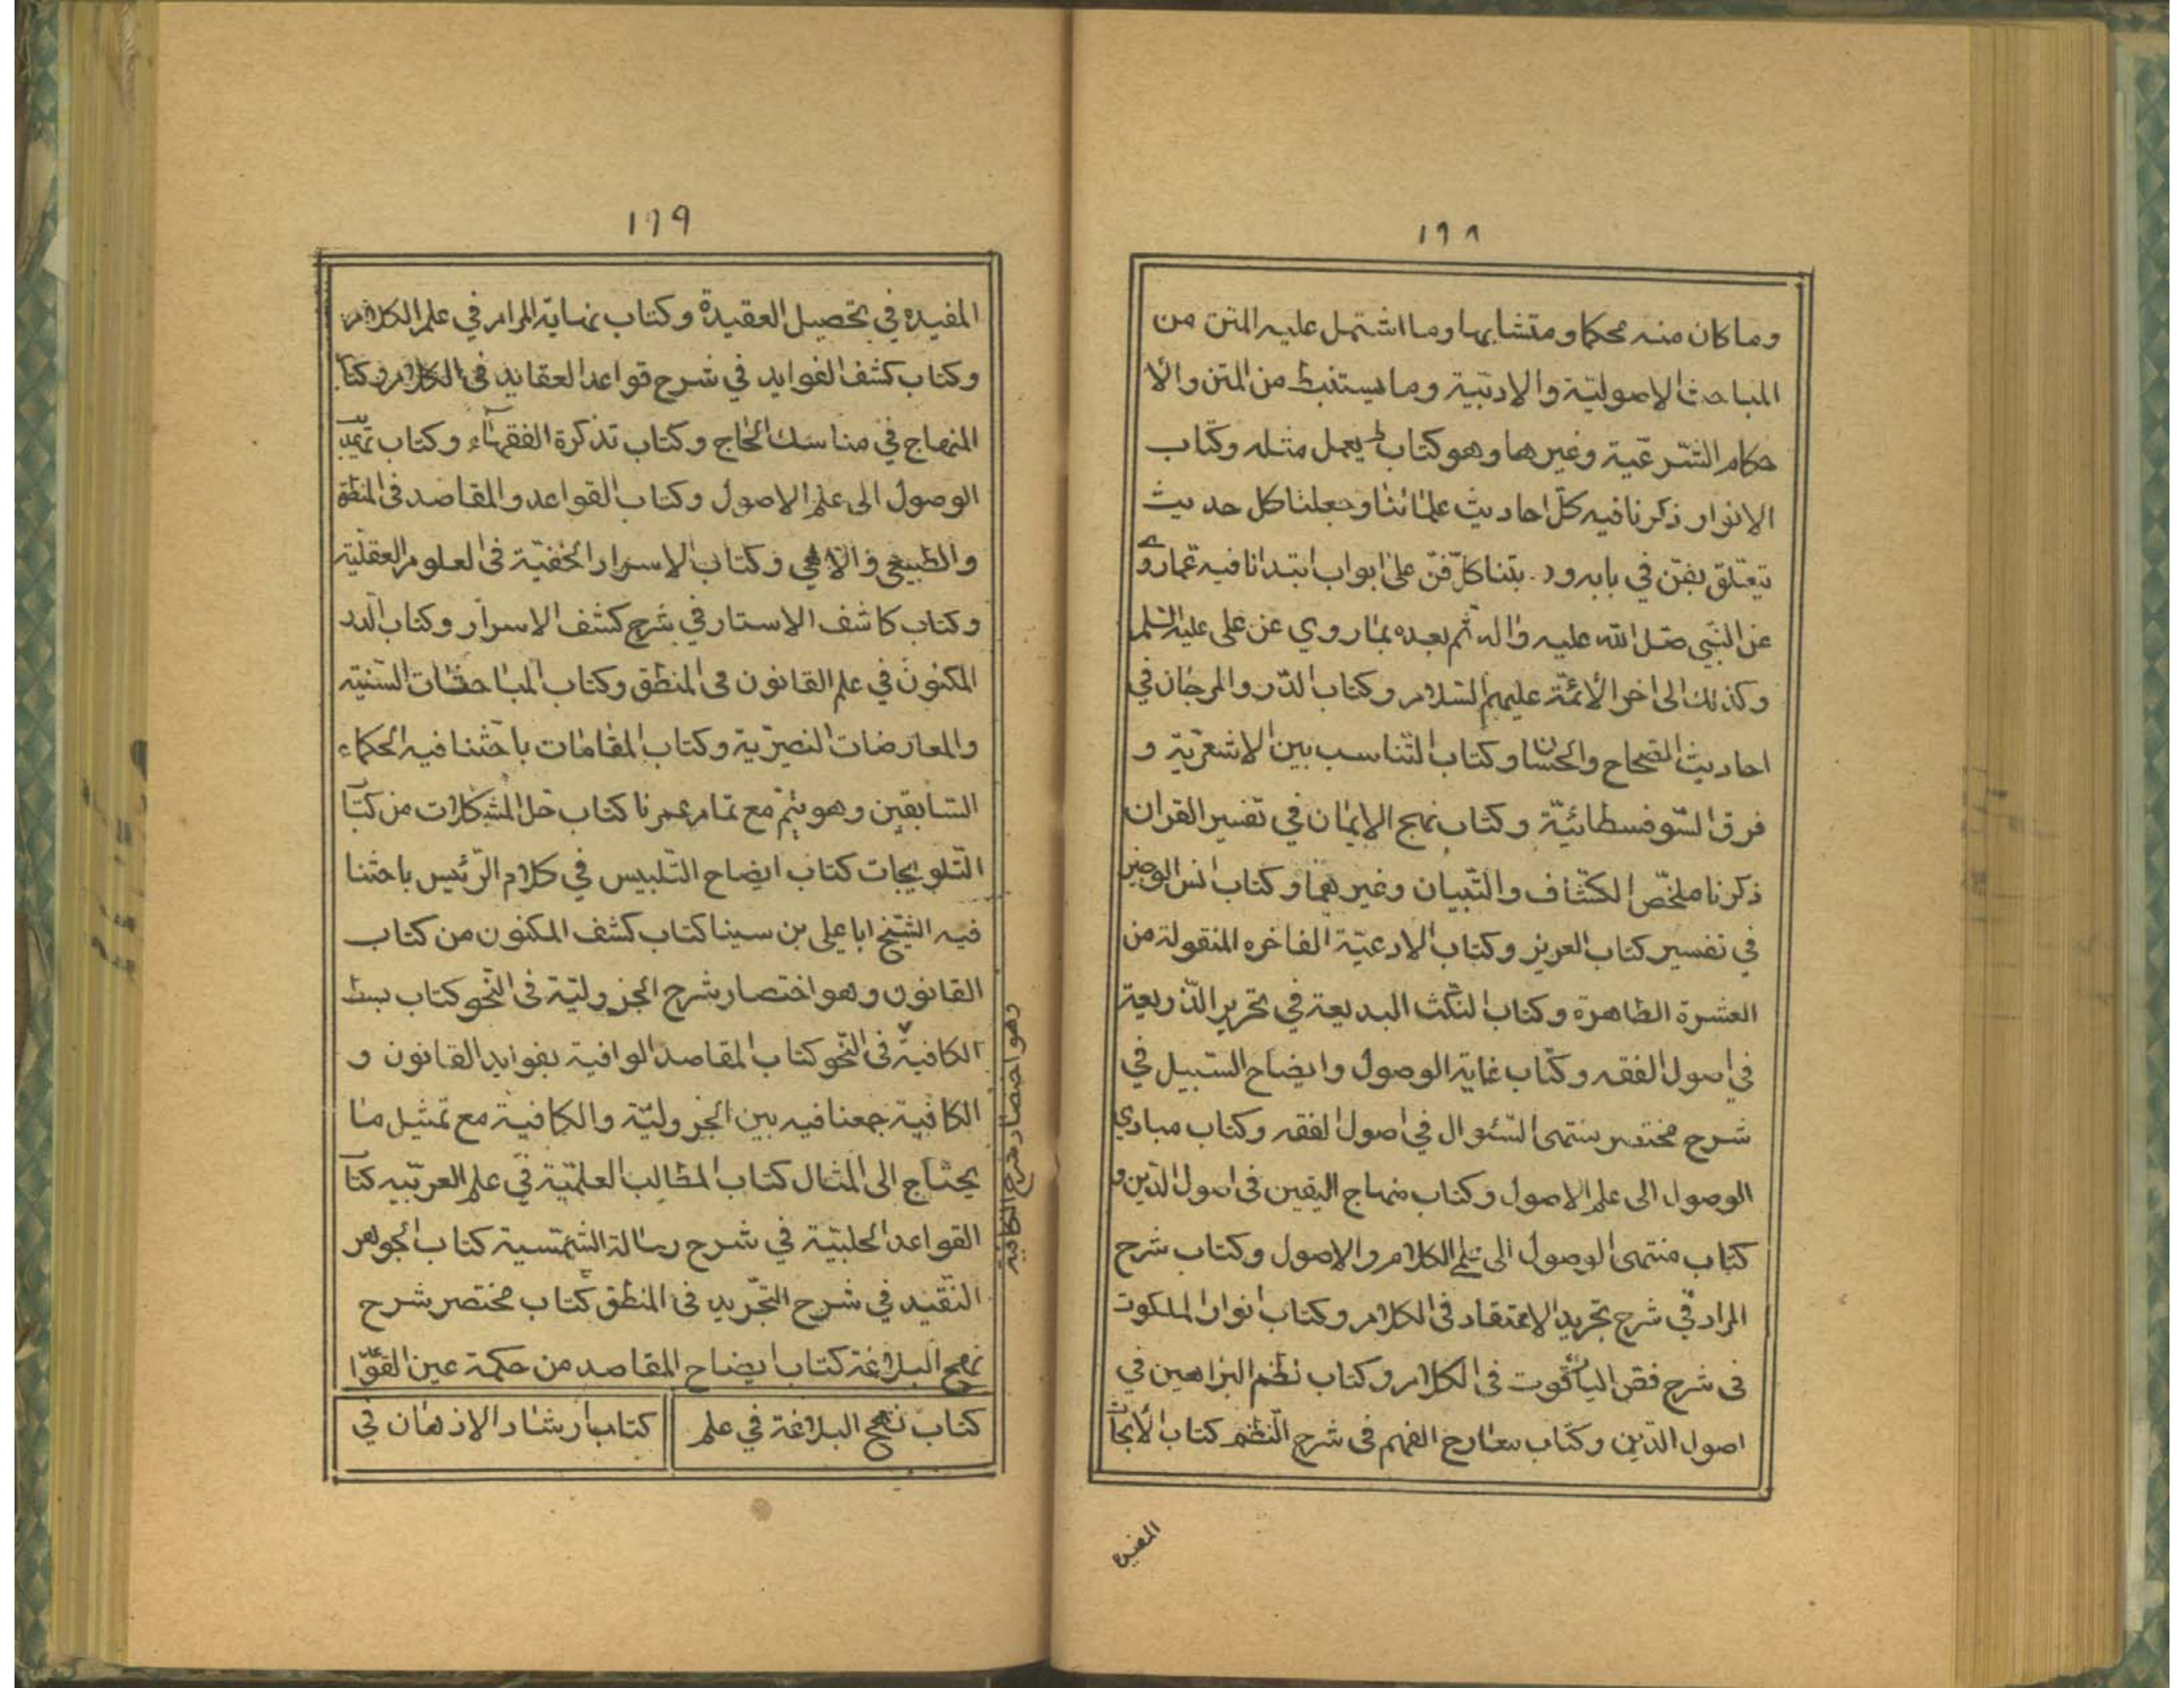 ١٦٨
وما كان منه محكما ومتشابها وما اشتمل عليه المتن من
المباحث الاصوليّة والادبيّة وما يستنبط من المتن والا
حكام الشّرعيّة وغيرها وهو كتاب لم يعمل مثله وكتاب
الانوار ذكرنا فيه كلّ احاديث علمائنا وجعلنا كل حديث
يتعلّق بفنّ في بابه و بتنا كلّ فنّ على ابواب ابتدأنا فيه عمّا روى
عن النّبي صلى الله عليه واله ثم بعده بما روي عن على عليه السّلم
وكذلك الى اخر الأئمّة عليهم السّلام وكتاب الدّر والمرجان في
احاديث الصّحاح والحسان وكتاب التّناسب بين الاشعريّة و
فرق السّوفسطائيّة وكتاب نهج الايمان في تفسير القران
ذكرنا ملخّص الكشّاف والتّبيان وغيرهما وكتاب
في تفسير كتاب العزيز وكتاب الادعيّة الفاخره المنقولة من
العشرة الطاهرة وكتاب النكت البديعة في تحرير الذّريعة
في اصول الفقه وكتاب غاية الوصول وايضاح السّبيل في
شرح مختصر منتهى السّئوال في اصول الفقه وكتاب مبادي
الوصول الى علم الاصول وكتاب منهاج اليقين فى اصول الدّين و
كتاب منتهى الوصول الى علم الكلام والاصول وكتاب شرح
المراد في شرح تجريد الاعتقاد فى الكلام وكتاب انوار الملكوت
فى شرح فصّ الياقوت فى الكلام وكتاب نظم البراهين في
اصول الدّين وكتاب معارج الفهم فى شرح النّظم كتاب الأبحاث
المفيده
١٦٩
المفيده في تحصيل العقيدة وكتاب نهاية المرام في علم الكلام
وكتاب كشف الفوايد في شرح قواعد العقايد فى الكلام وكتاب
المنهاج في مناسك الحاج وكتاب تذكرة الفقهاء وكتاب تهذيب
الوصول الى علم الاصول وكتاب القواعد والمقاصد فى المنطق
والطبيعي والالهي وكتاب الاسرار الخفيّة فى العلوم العقليّة
وكتاب كاشف الاستار في شرح كشف الاسرار وكتاب الدر
المكنون في علم القانون فى المنطق وكتاب المباحثات السّنيّة
والمعارضات النصيريّة وكتاب المقامات باحثنا فيه الحكماء
السّابقين وهو يتمّ مع تمام عمرنا كتاب حلّ المشكلات من كتاب
التّلويحات كتاب ايضاح التّلبيس في كلام الرّئيس باحثنا
فيه الشّيخ ابا على بن سينا كتاب كشف المكنون من كتاب
القانون وهو اختصار شرح الجزوليّة فى النّحو كتاب بسط
الكافية فى النّحو كتاب المقاصد الوافية بفوايد القانون و
الكافية جمعنا فيه بين الجزوليّة والكافية مع تمثيل ما
يحتاج الى المثال كتاب المطالب العلميّة في علم العربيّه كتاب
القواعد الجليّة في شرح رسالة الشّمسية كتاب الجواهر
النّقيد في شرح التّجريد فى المنطق كتاب مختصر شرح
نهج البلاغة كتاب ايضاح المقاصد من حكمة عين القوّا
كتاب نهج البلاغة في علم
كتاب ارشاد الاذهان في
وهو اختصار شرح الكافية